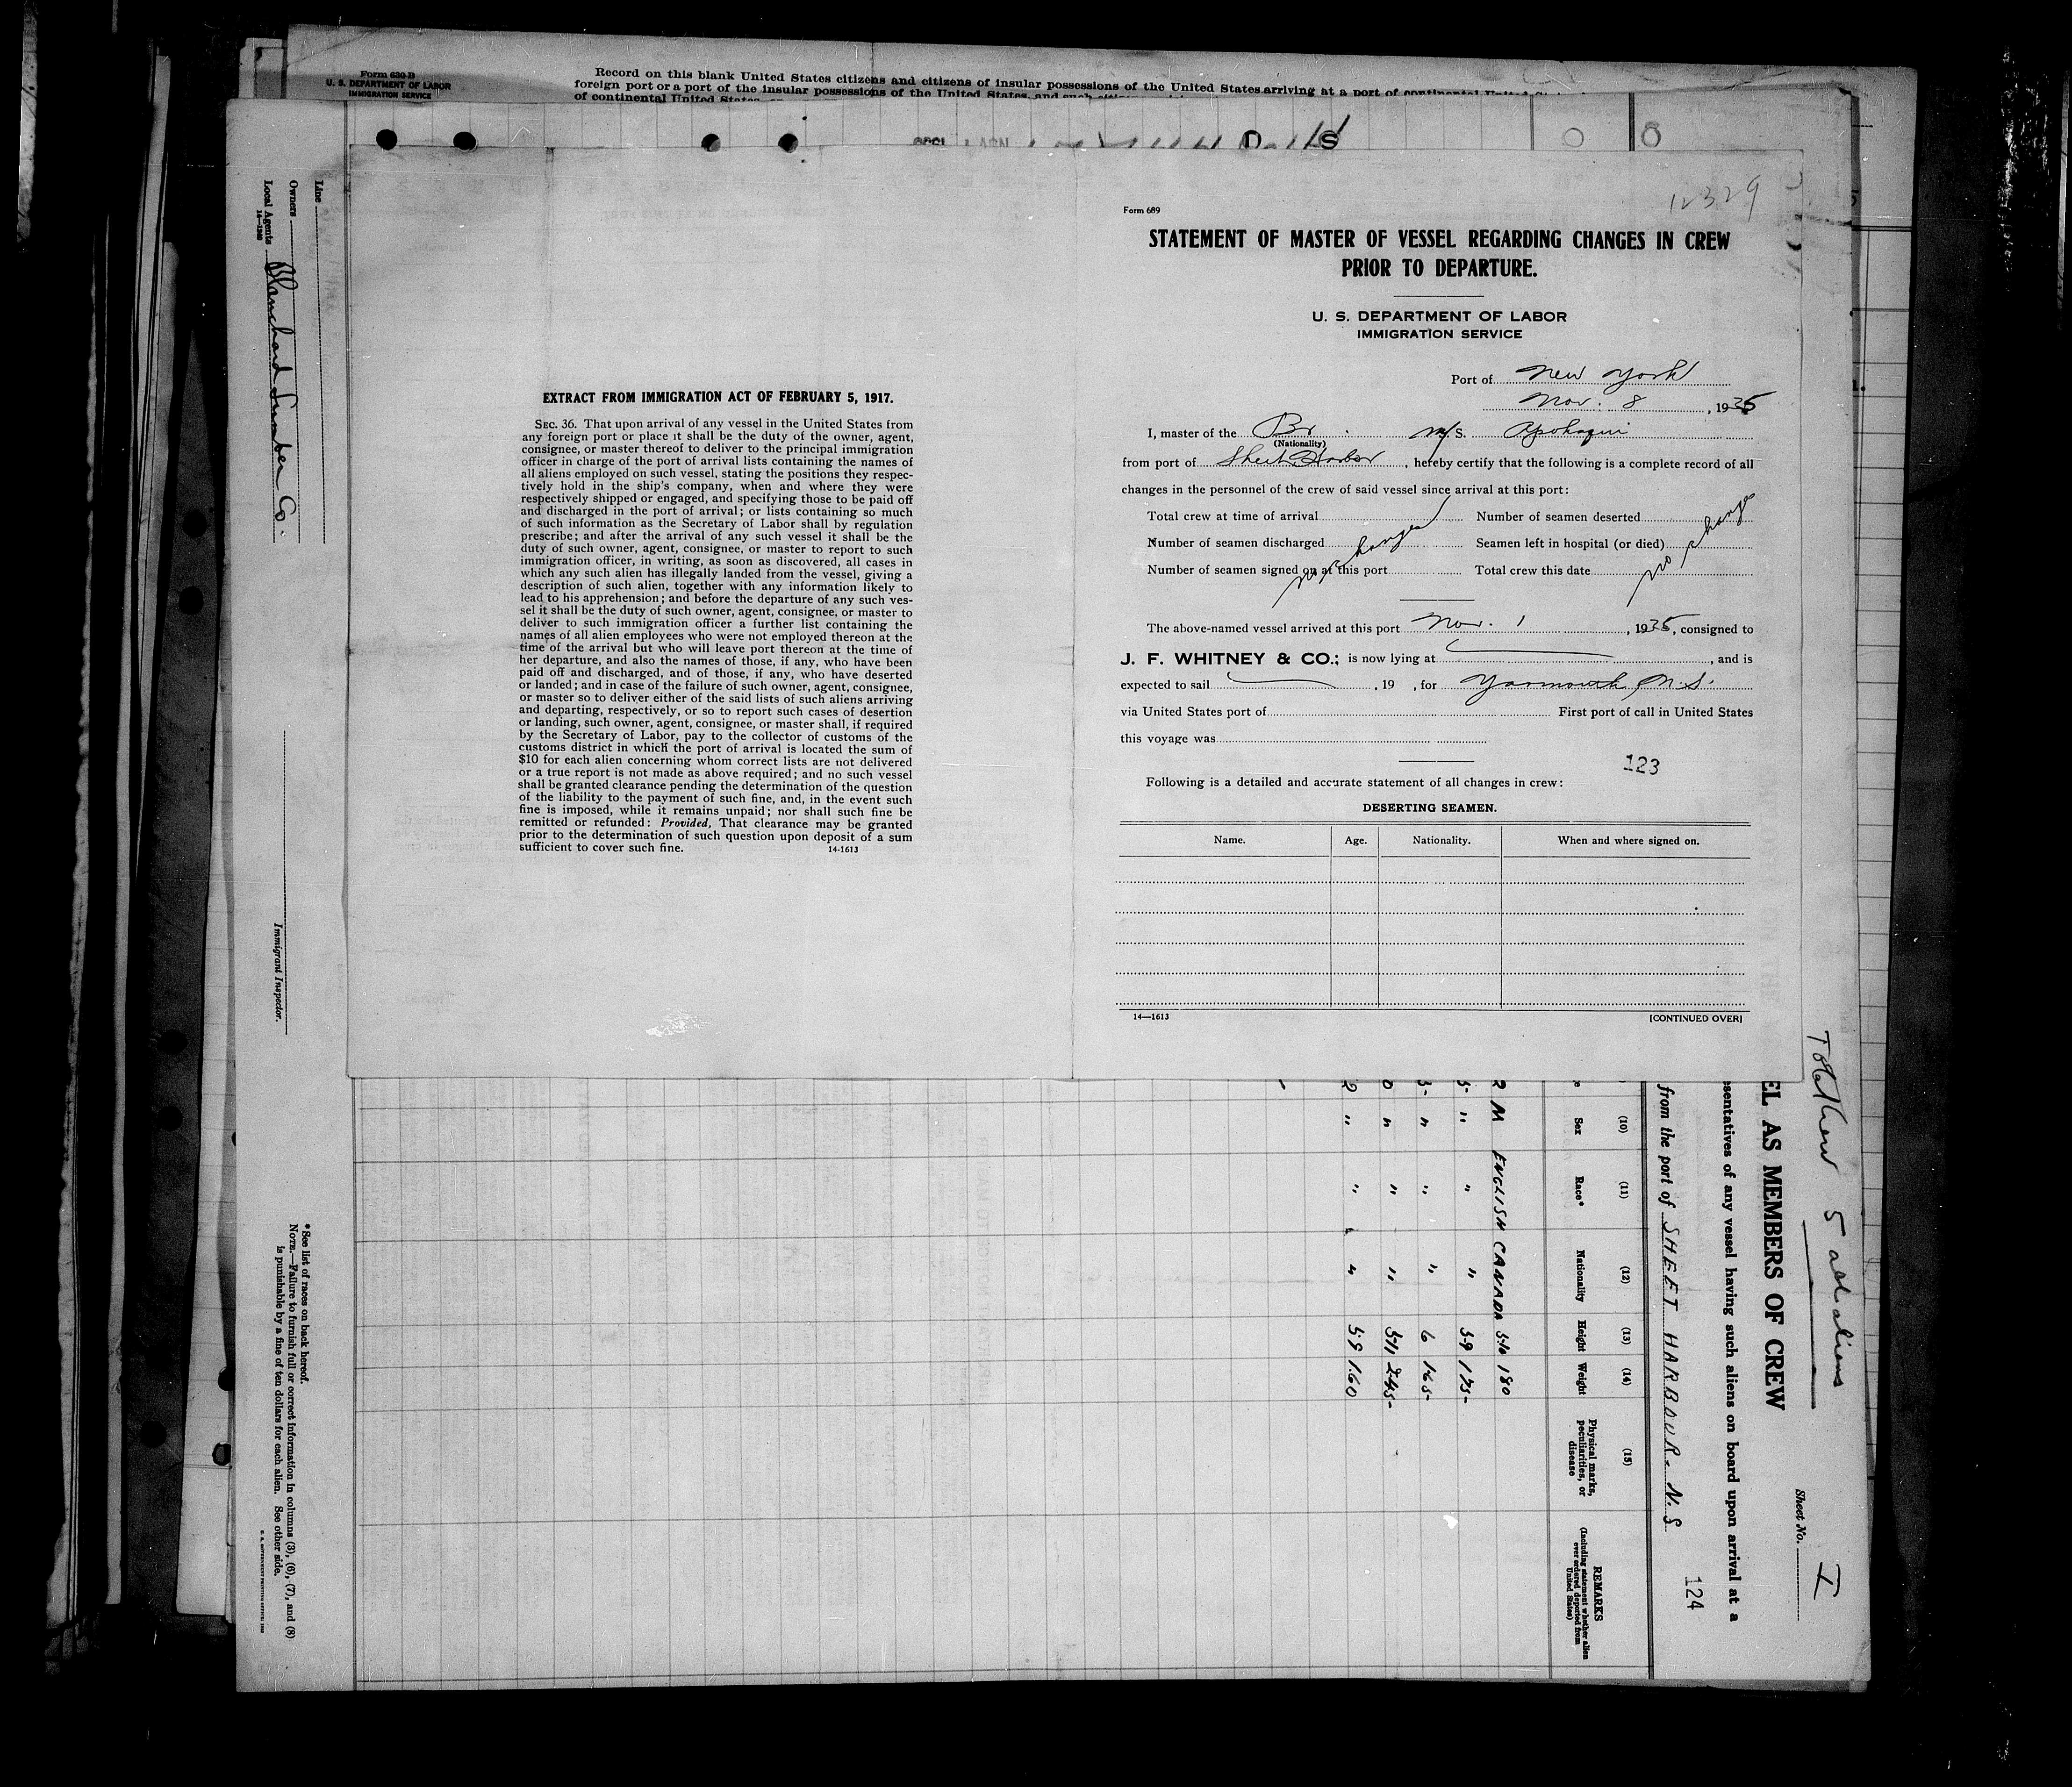 Form 630 B
U. S. DEPARTMENT OF LABOR
IMMIGRATION SERVICE
Record on this blank United States citizens and citizens of insular possessions of the United States arriving at a port of continental United
foreign port or a port of the insular possessions of the United States, and such
of continental United States,
Line
Owners
Local Agents Blanchard Lumber Co.
14-1240
Immigrant Inspector.
* See list of races on back hereof.
NOTE.—Failure to furnish full or correct information in columns (3), (6), (7), and (8)
is punishable by a fine of ten dollars for each alien. See other side.
EXTRACT FROM IMMIGRATION ACT OF FEBRUARY 5, 1917.
SEC. 36. That upon arrival of any vessel in the United States from
any foreign port or place it shall be the duty of the owner, agent,
consignee, or master thereof to deliver to the principal immigration
officer in charge of the port of arrival lists containing the names of
all aliens employed on such vessel, stating the positions they respec-
tively hold in the ship's company, when and where they were
respectively shipped or engaged, and specifying those to be paid off
and discharged in the port of arrival; or lists containing so much
of such information as the Secretary of Labor shall by regulation
prescribe; and after the arrival of any such vessel it shall be the
duty of such owner, agent, consignee, or master to report to such
immigration officer, in writing, as soon as discovered, all cases in
which any such alien has illegally landed from the vessel, giving a
description of such alien, together with any information likely to
lead to his apprehension; and before the departure of any such ves-
sel it shall be the duty of such owner, agent, consignee, or master to
deliver to such immigration officer a further list containing the
names of all alien employees who were not employed thereon at the
time of the arrival but who will leave port thereon at the time of
her departure, and also the names of those, if any, who have been
paid off and discharged, and of those, if any, who have deserted
or landed; and in case of the failure of such owner, agent, consignee,
or master so to deliver either of the said lists of such aliens arriving
and departing, respectively, or so to report such cases of desertion
or landing, such owner, agent, consignee, or master shall, if required
by the Secretary of Labor, pay to the collector of customs of the
customs district in which the port of arrival is located the sum of
$10 for each alien concerning whom correct lists are not delivered
or a true report is not made as above required; and no such vessel
shall be granted clearance pending the determination of the question
of the liability to the payment of such fine, and, in the event such
fine is imposed, while it remains unpaid; nor shall such fine be
remitted or refunded: Provided, That clearance may be granted
prior to the determination of such question upon deposit of a sum
sufficient to cover such fine. 14-1613
12329
Form 689
STATEMENT OF MASTER OF VESSEL REGARDING CHANGES IN CREW
PRIOR TO DEPARTURE.
U. S. DEPARTMENT OF LABOR
IMMIGRATION SERVICE
Port of New York
Nov. 8, 1935
I, master of the Br. M/S. Apohaqui
(Nationality)
from port of Sheet Harbor, hereby certify that the following is a complete record of all
changes in the personnel of the crew of said vessel since arrival at this port:
Total crew at time of arrival Number of seamen deserted
Number of seamen discharged Seamen left in hospital (or died)
Number of seamen signed on at this port Total crew this date
no changes no change
The above-named vessel arrived at this port Nov. 1, 1935, consigned to
J. F. WHITNEY & CO.; is now lying at , and is
expected to sail , 19 , for Yarmouth, N.S.
via United States port of First port of call in United States
this voyage was
123
Following is a detailed and accurate statement of all changes in crew:
DESERTING SEAMEN.
Name. Age. Nationality. When and where signed on.
14—1613 [CONTINUED OVER]
Total Crew 5 all aliens
Sheet No. I
EL AS MEMBERS OF CREW
sentatives of any vessel having such aliens on board upon arrival at a
from the port of SHEET HARBOUR. N.S.
124
(10) (11) (12) (13) (14) (15)
Sex Race* Nationality Height Weight Physical marks, peculiarities, or disease REMARKS (Including statement whether alien ever ordered deported from United States)
2 M ENGLISH CANADA 5-10 180
5- " " " 5-9 175-
3- " " " 6 165-
0 " " " 5-11 245-
2 " " " 5-9 160